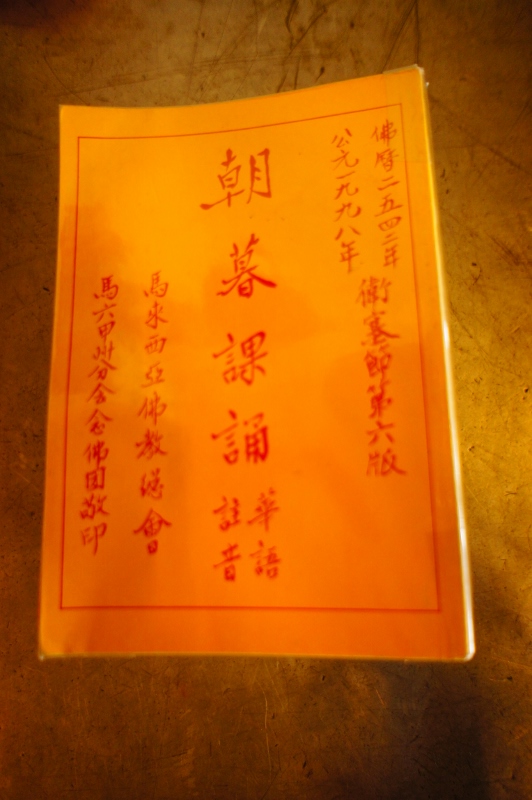 佛曆二五四二年
公元一九九八年
衛塞節第六版
朝暮課誦
華語
註音
馬來西亞佛教總會
馬六甲州分会念佛团敬印